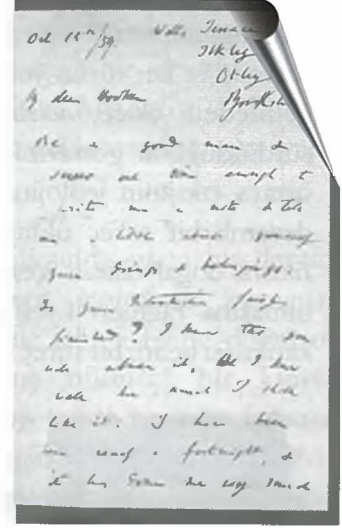 Oct 15th/59. Wells Terrace
Ilkley
Otley
Yorkshire
My dear Hooker
Be a good man &
screw out time enough to
write me a note & tell
me a little about yourself
your doings & belongings.
Is your Introduction fairly
finished? I know you
will abuse it, & I know
well how much I shall
like it. I have been
here nearly a fortnight, &
it has done me very much